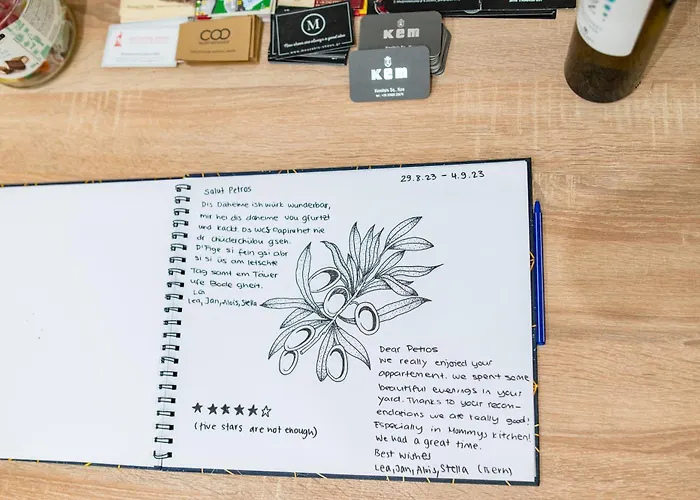 M
Kem
Kem
29.8.23 - 4.9.23
Salut Petros
Dis Daheime isch würk wunderbar,
mir hei dis daheime vou gfürtzt
und kackt. Ds WC & Papirhet nie
dr chuderchübu gseh.
D'Fige si fein gsi abr
si si üs am letschte
Tag samt em Täuer
ufe Bode gheit.
Lea, Jan, Alois, Stella
Dear Petros
We really enjoyed your
appartement. We spent some
beautiful evenings in your
yard. Thanks to your recom-
endations we ate really good!
Especially in Mommys kitchen!
We had a great time.
Best wishes
Lea, Jan, Alois, Stella (Bern)
★★★★★☆
(five stars are not enough)